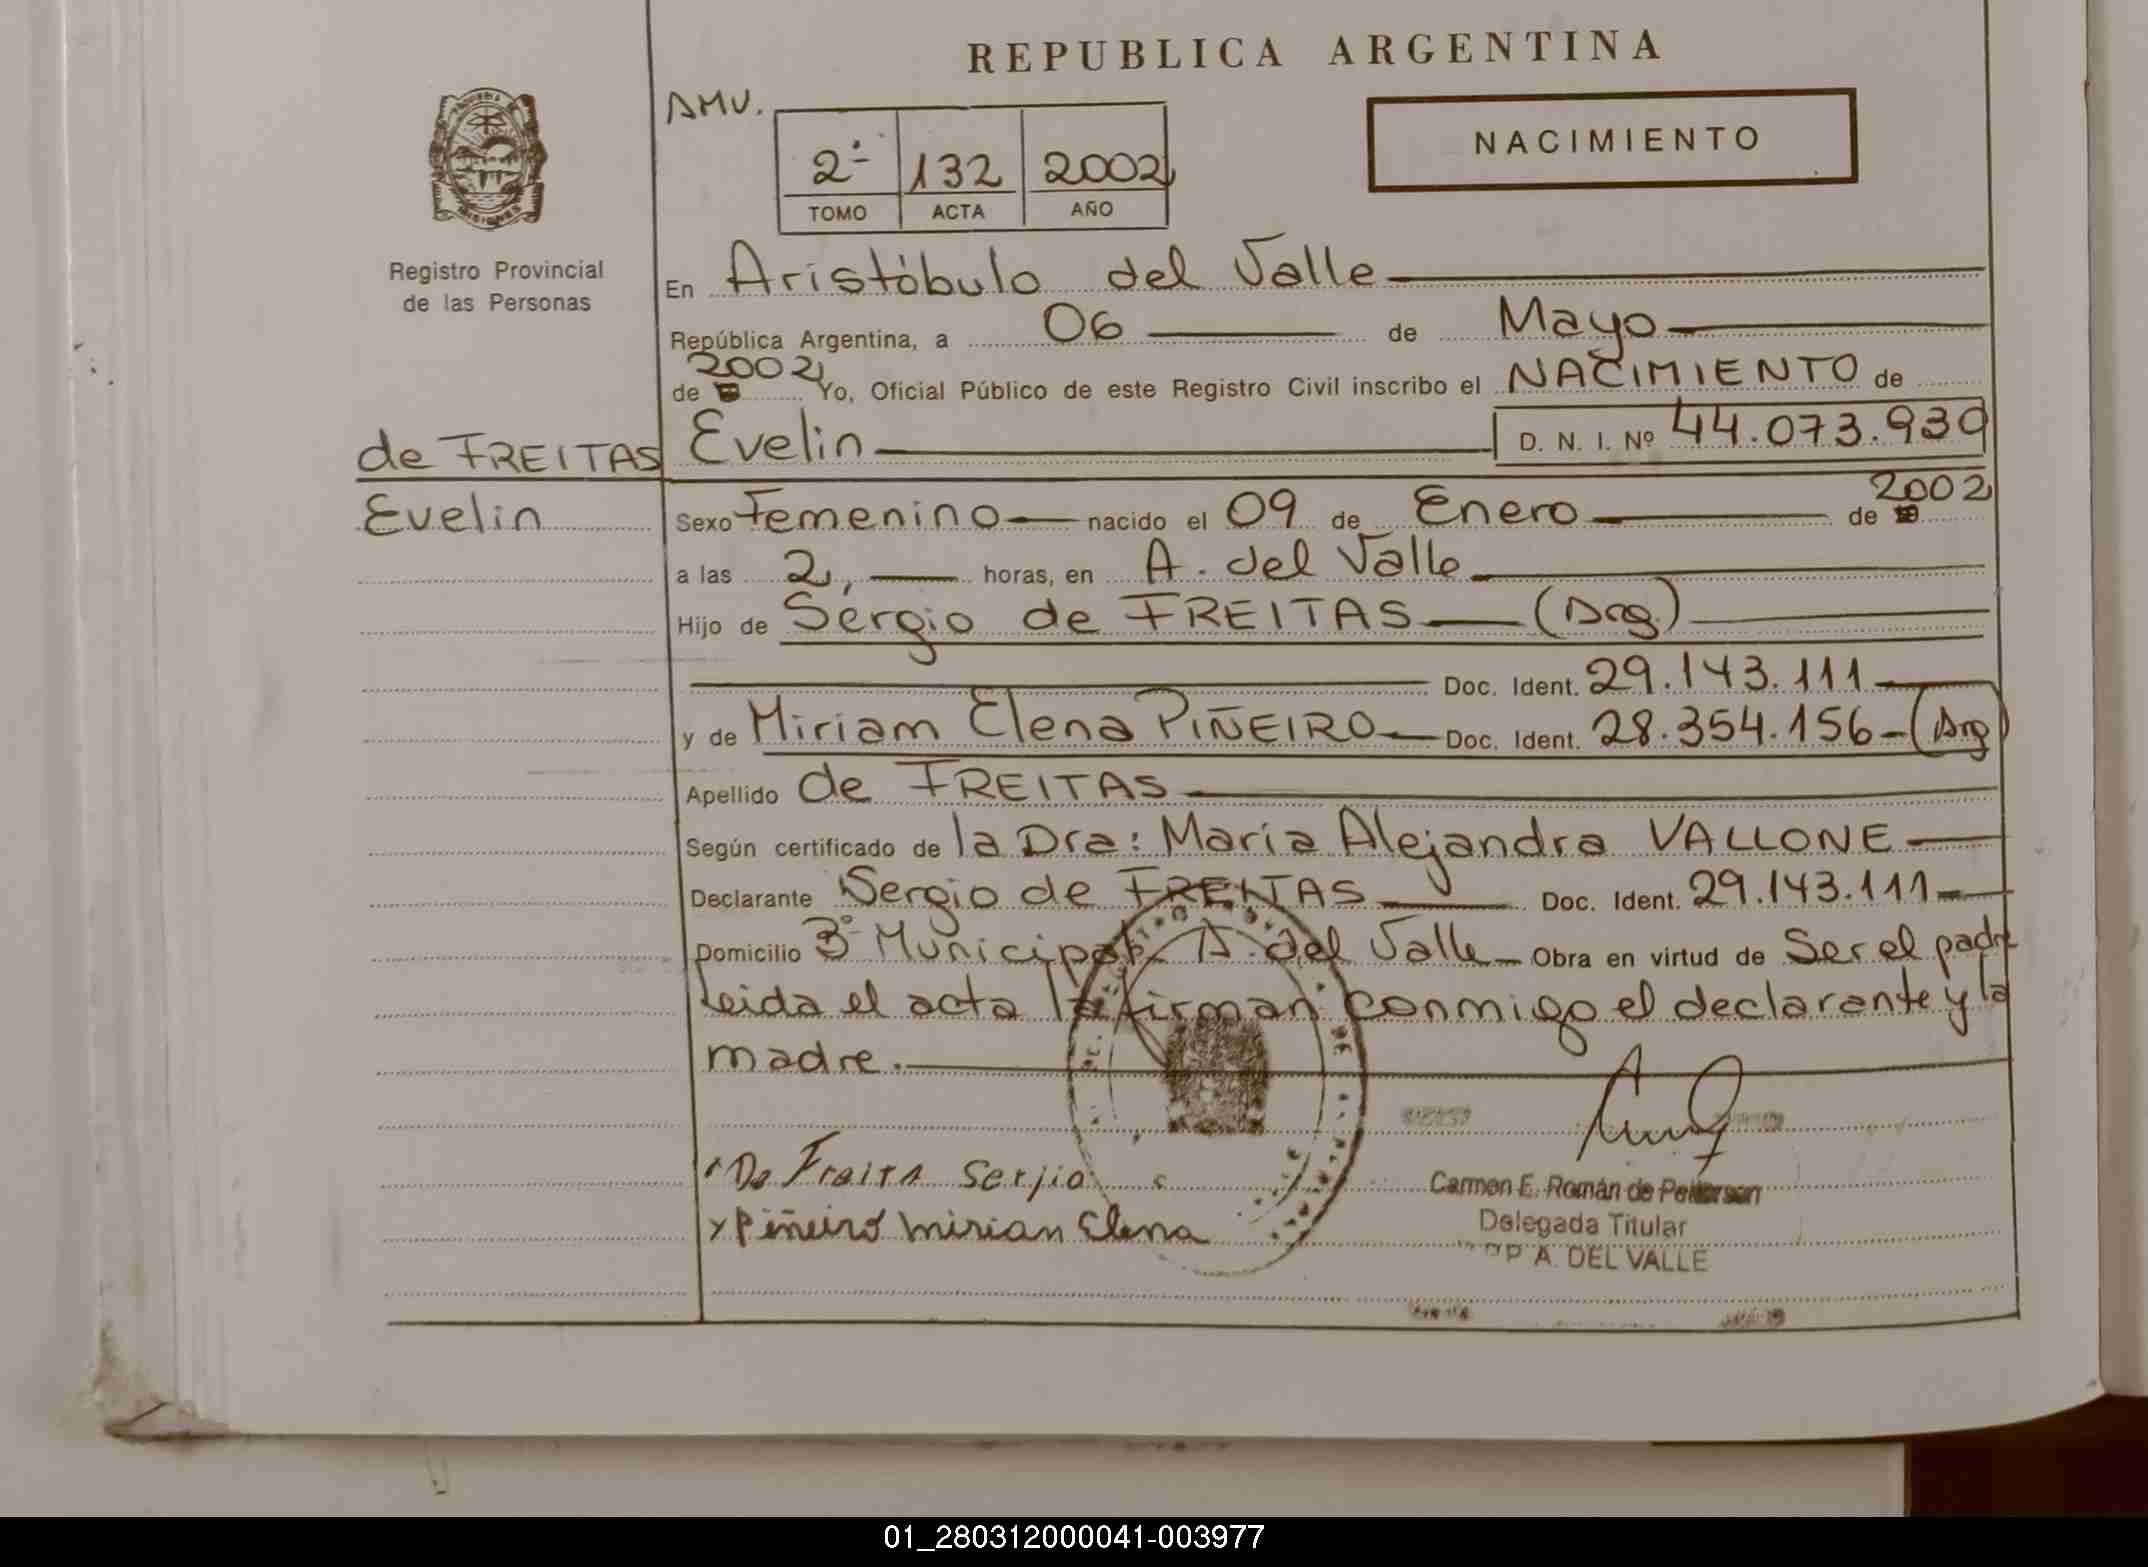 REPUBLICA ARGENTINA
AMV.
2º 132 2002
TOMO ACTA AÑO
NACIMIENTO
MISIONES
Registro Provincial
de las Personas
En Aristóbulo del Valle
República Argentina, a 06 de Mayo
de 2002 Yo, Oficial Público de este Registro Civil inscribo el NACIMIENTO de
de FREITAS Evelin D. N. I. Nº 44.073.930
Evelin
Sexo Femenino nacido el 09 de Enero de 2002
a las 2, horas, en A. del Valle
Hijo de Sergio de FREITAS (Arg.)
Doc. Ident. 29.143.111
y de Miriam Elena PIÑEIRO Doc. Ident. 28.354.156 - (Arg)
Apellido de FREITAS
Según certificado de la Dra: María Alejandra VALLONE
Declarante Sergio de FREITAS Doc. Ident. 29.143.111
Domicilio Bº Municipal A. del Valle Obra en virtud de Ser el padre
leida el acta la firman conmigo el declarante y la
madre.
De Fraita Serjio
x Piñeiro Mirian Elena
Carmen E. Román de Petterson
Delegada Titular
A. DEL VALLE
01_280312000041-003977